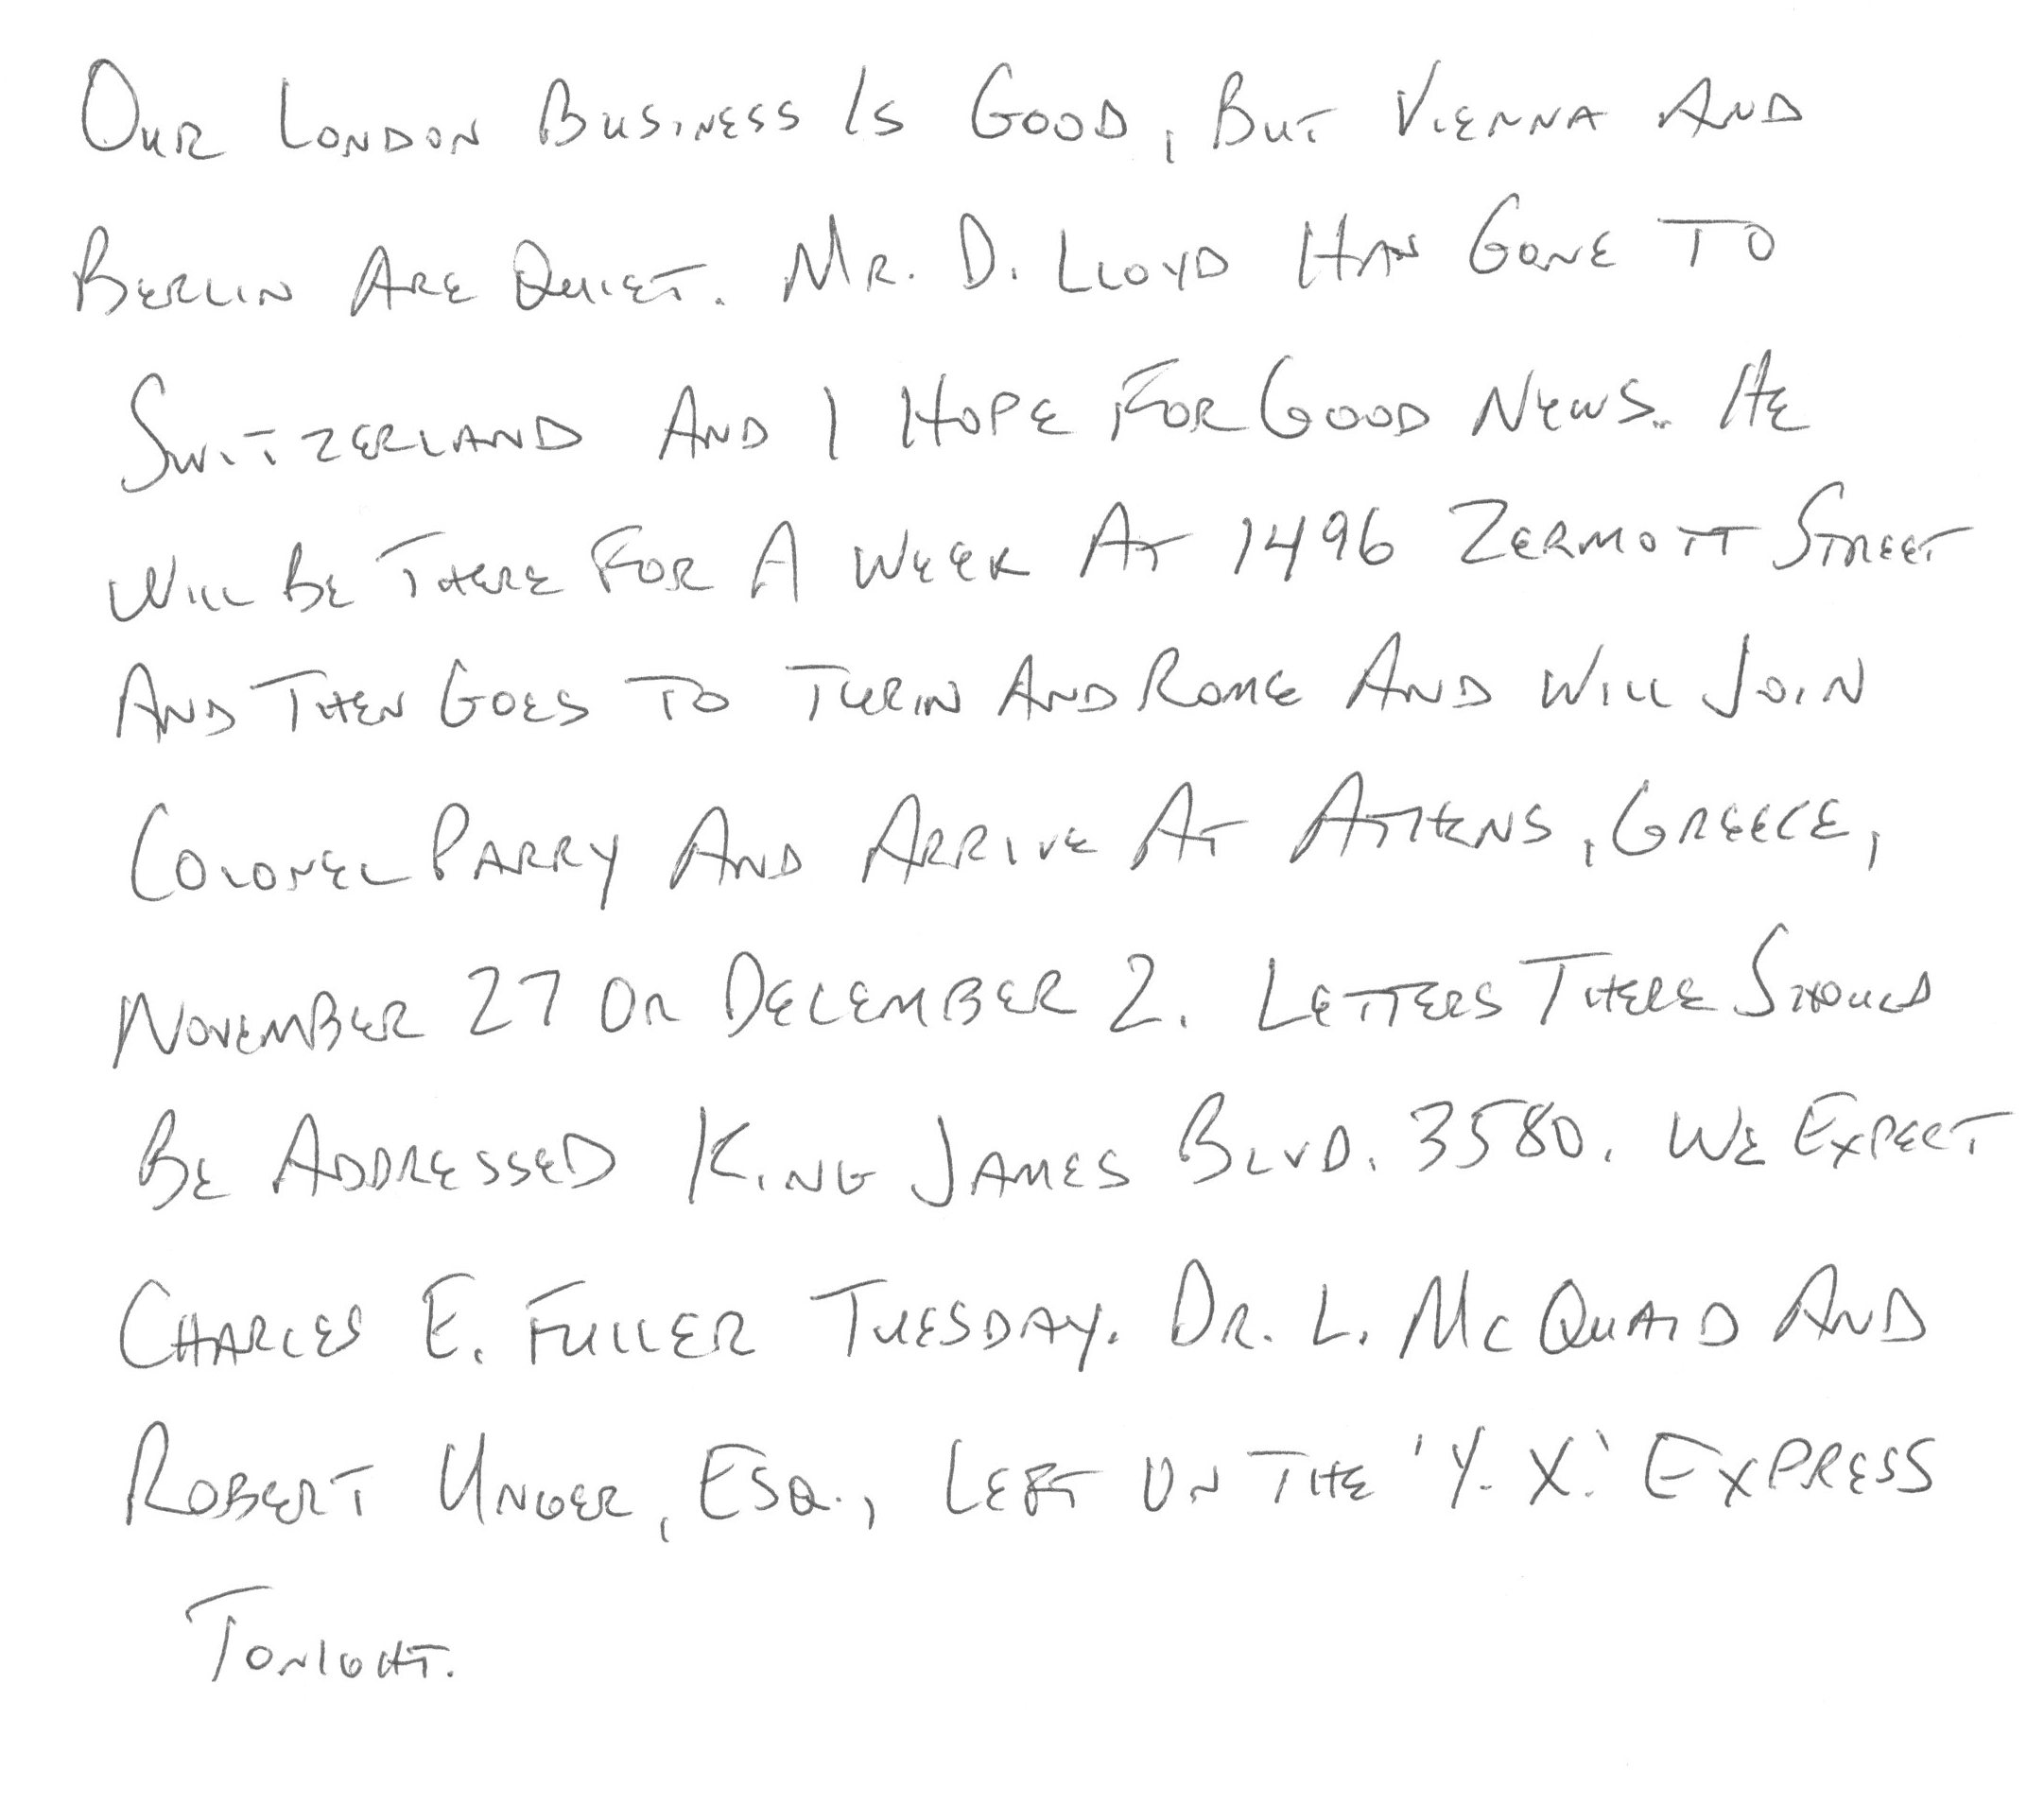 Our London Business Is Good, But Vienna And
Berlin Are Quiet. Mr. D. Lloyd Has Gone To
Switzerland And I Hope For Good News.. He
Will Be There For A Week At 1496 Zermott Street
And Then Goes To Turin And Rome And Will Join
Colonel Parry And Arrive At Athens, Greece,
November 27 Or December 2. Letters There Should
Be Addressed King James Blvd. 3580. We Expect
Charles E. Fuller Tuesday. Dr. L. McQuaid And
Robert Unger, Esq., Left On The 'Y. X.' Express
Tonight.